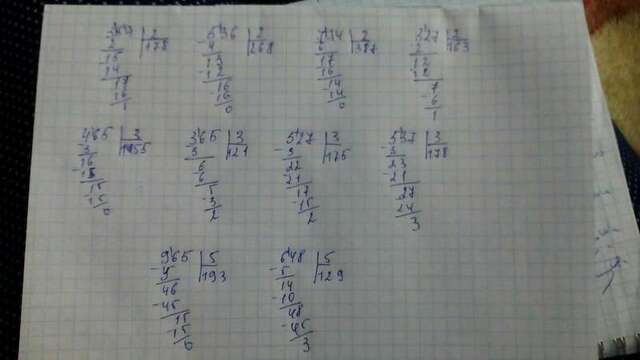 536 | 2
4 | 268
13
12
16
16
0
14 | 2
387
17
16
14
14
0
327 | 2
2 | 163
12
12
7
6
1
465 | 3
3 | 155
16
15
15
15
0
365 | 3
3 | 121
6
6
5
3
2
527 | 3
3 | 175
22
21
17
15
2
537 | 3
3 | 178
23
21
27
24
3
965 | 5
5 | 193
46
45
15
15
0
648 | 5
5 | 129
14
10
48
45
3